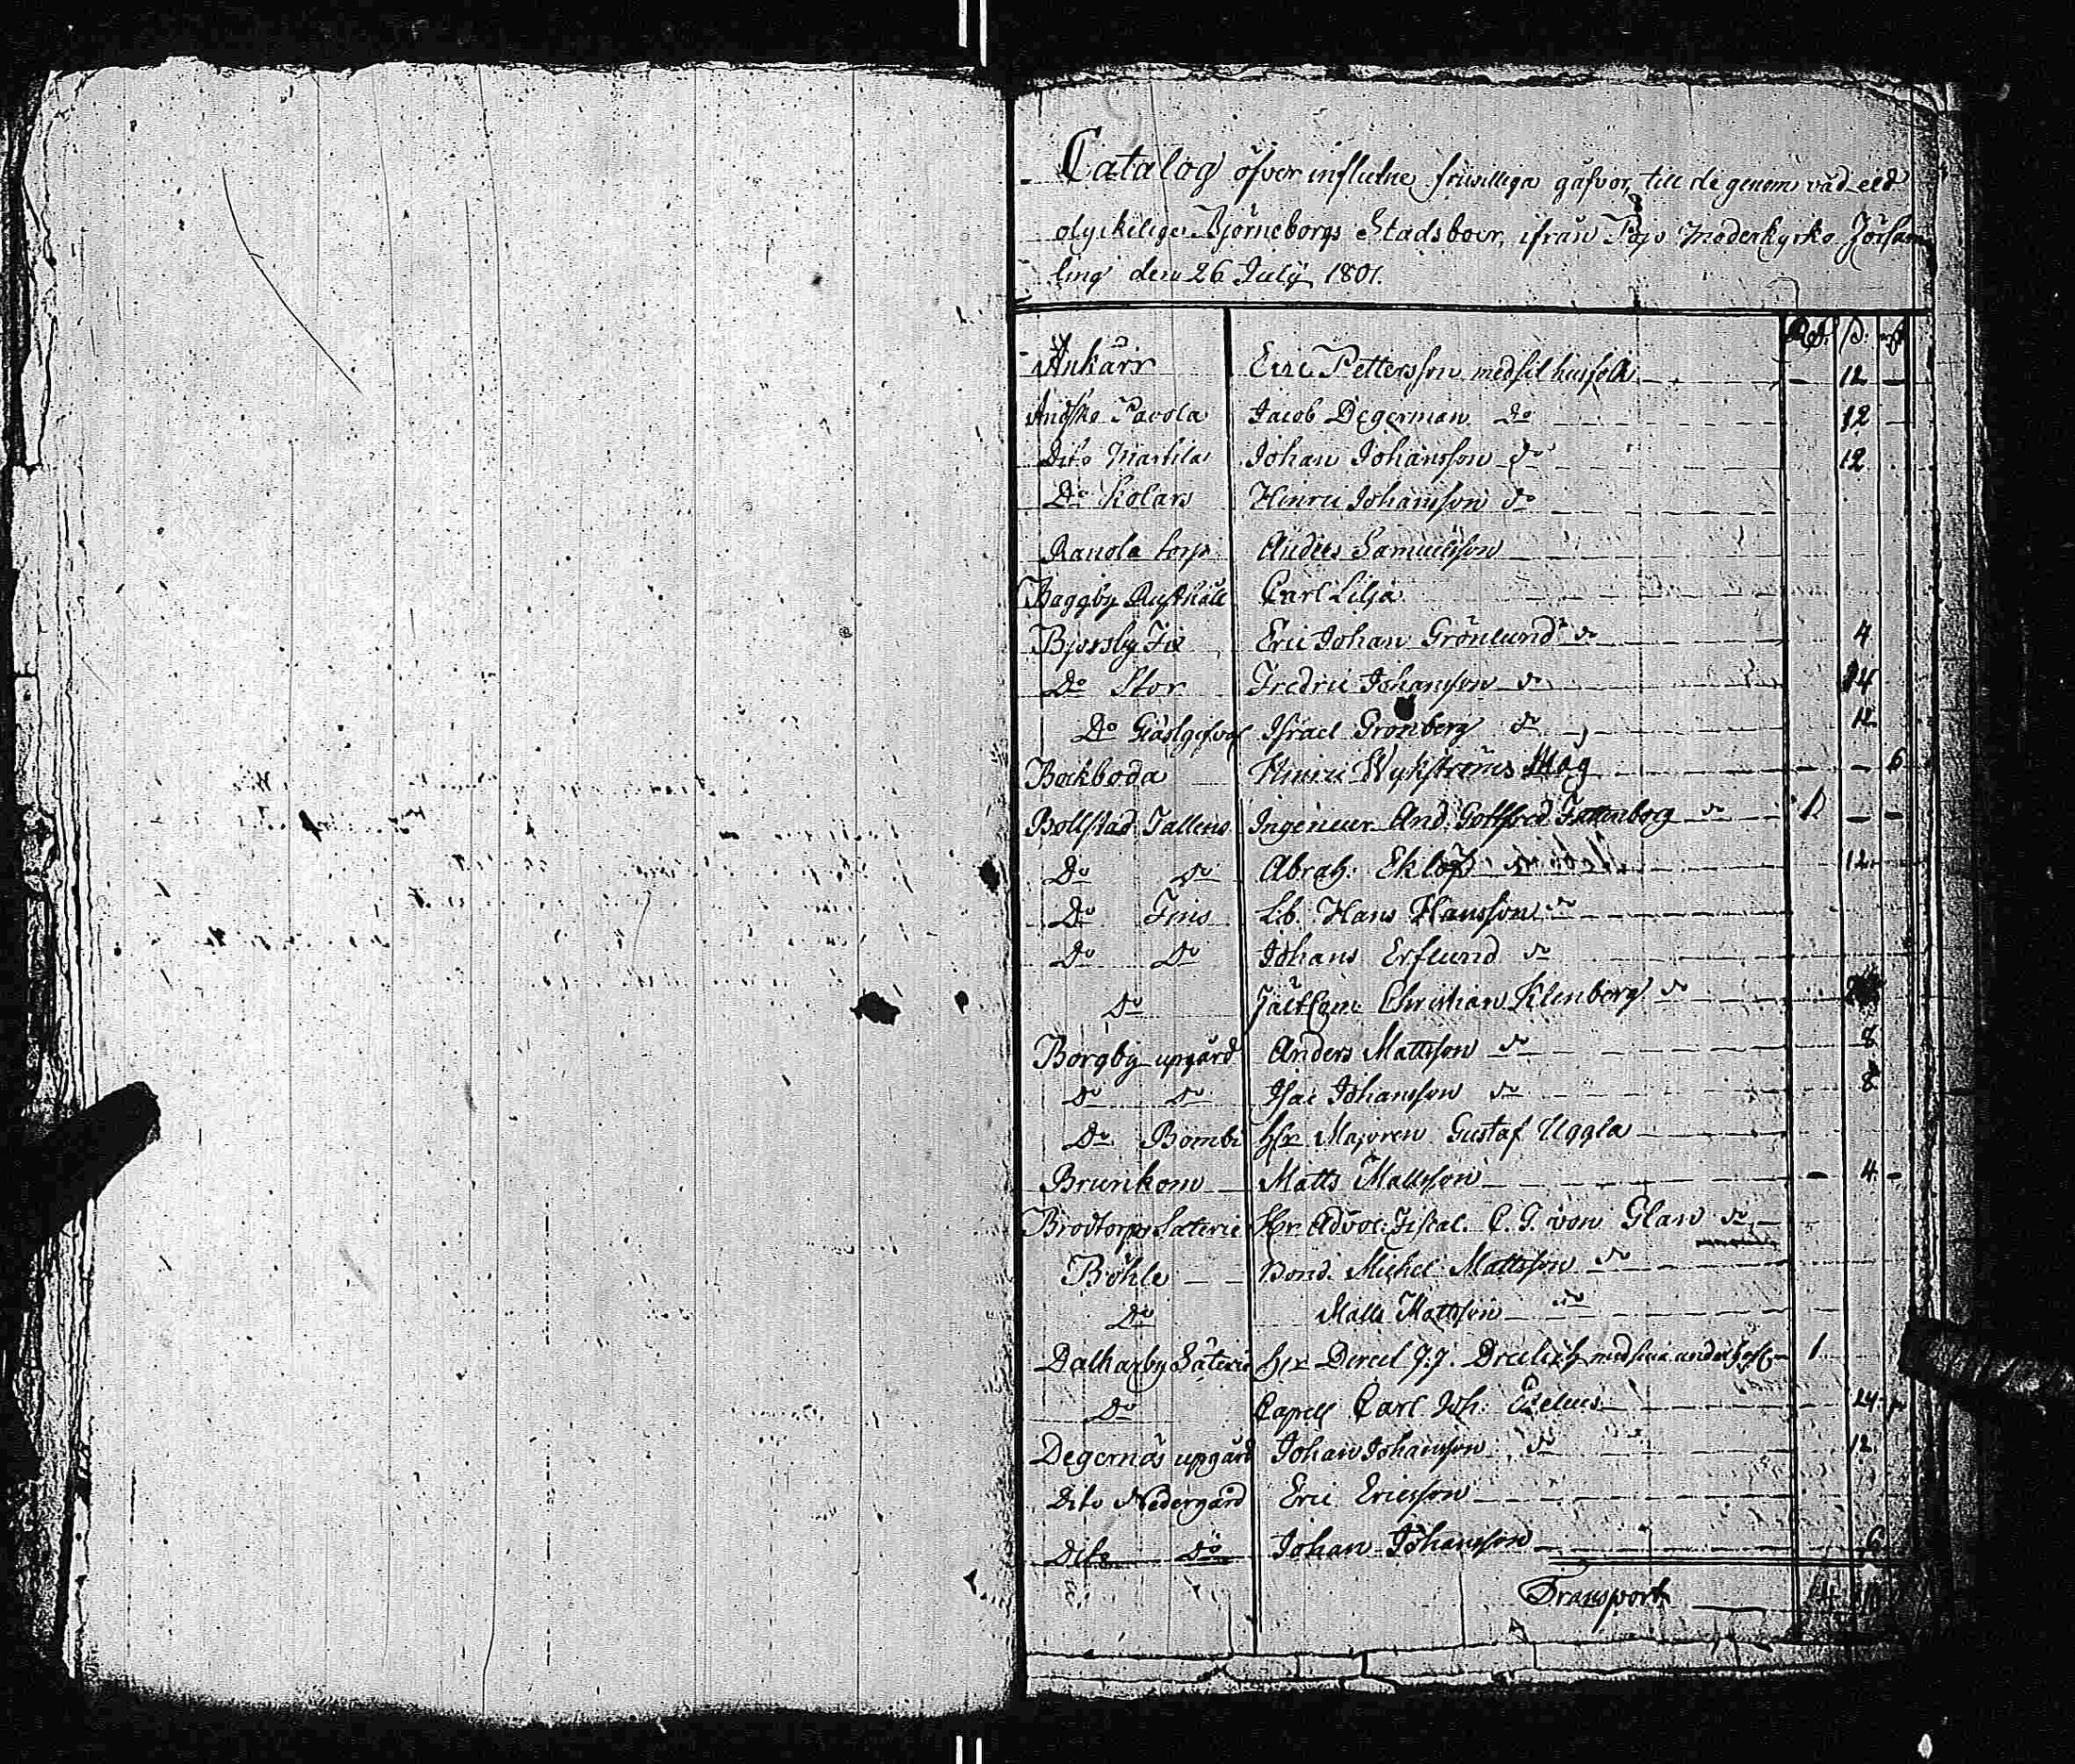 Catalog öfver influtne friwilliga gåfvor, till de genom vådeld
olyckelige Björneborgs Stadsboer, ifrån Pojo Moderkyrko Församling
ling den 26 July 1801.
Rd. s. rst
Ankärr Eric Pettersson med sit husfolk — 12 —
Andskö Pavola Jacob Degerman do 12 —
Dito Martila Johan Johansson do 12
Do Kolars Hinric Johansson do
Ranola torp Anders Samuelsson
Baggby Rusthåll Carl Lilja
Bjorsby Fix Eric Johan Grönlund do 4
Do Stor Fredric Johansson do 14
Do Gästgifvar Israel Grönberg do 12
Bockboda Hinric Wykströms Måg — — 6
Bollstad Tallens Ingenieur And. Gottfred do 1 — —
Do do Abrah: Eklöf do 12
Do Fins Lb. Hans Hansson do
Do Do Johans Erflund do
Do Christian Klenberg do
Borgby upgård Anders Mattsson do 8
Do do Isac Johansson do 8
Do Bombi Hr Majoren Gustaf Uggla
Brunkom Matts Mattsson — 4 —
Brödtorps Säterie Hr Advoc: Fiscal. C. G. von Glan do
Böhle Bond. Michel Mattsson do
Do Matts Mattsson do
Dalkarby Säterie Hr J. J. med sina underhafv 1
Do Capell Carl Joh: 24
Degernäs upgård Johan Johansson do 12
Dito Nedergård Eric Ericsson
Dito do Johan Johansson 6
Transport